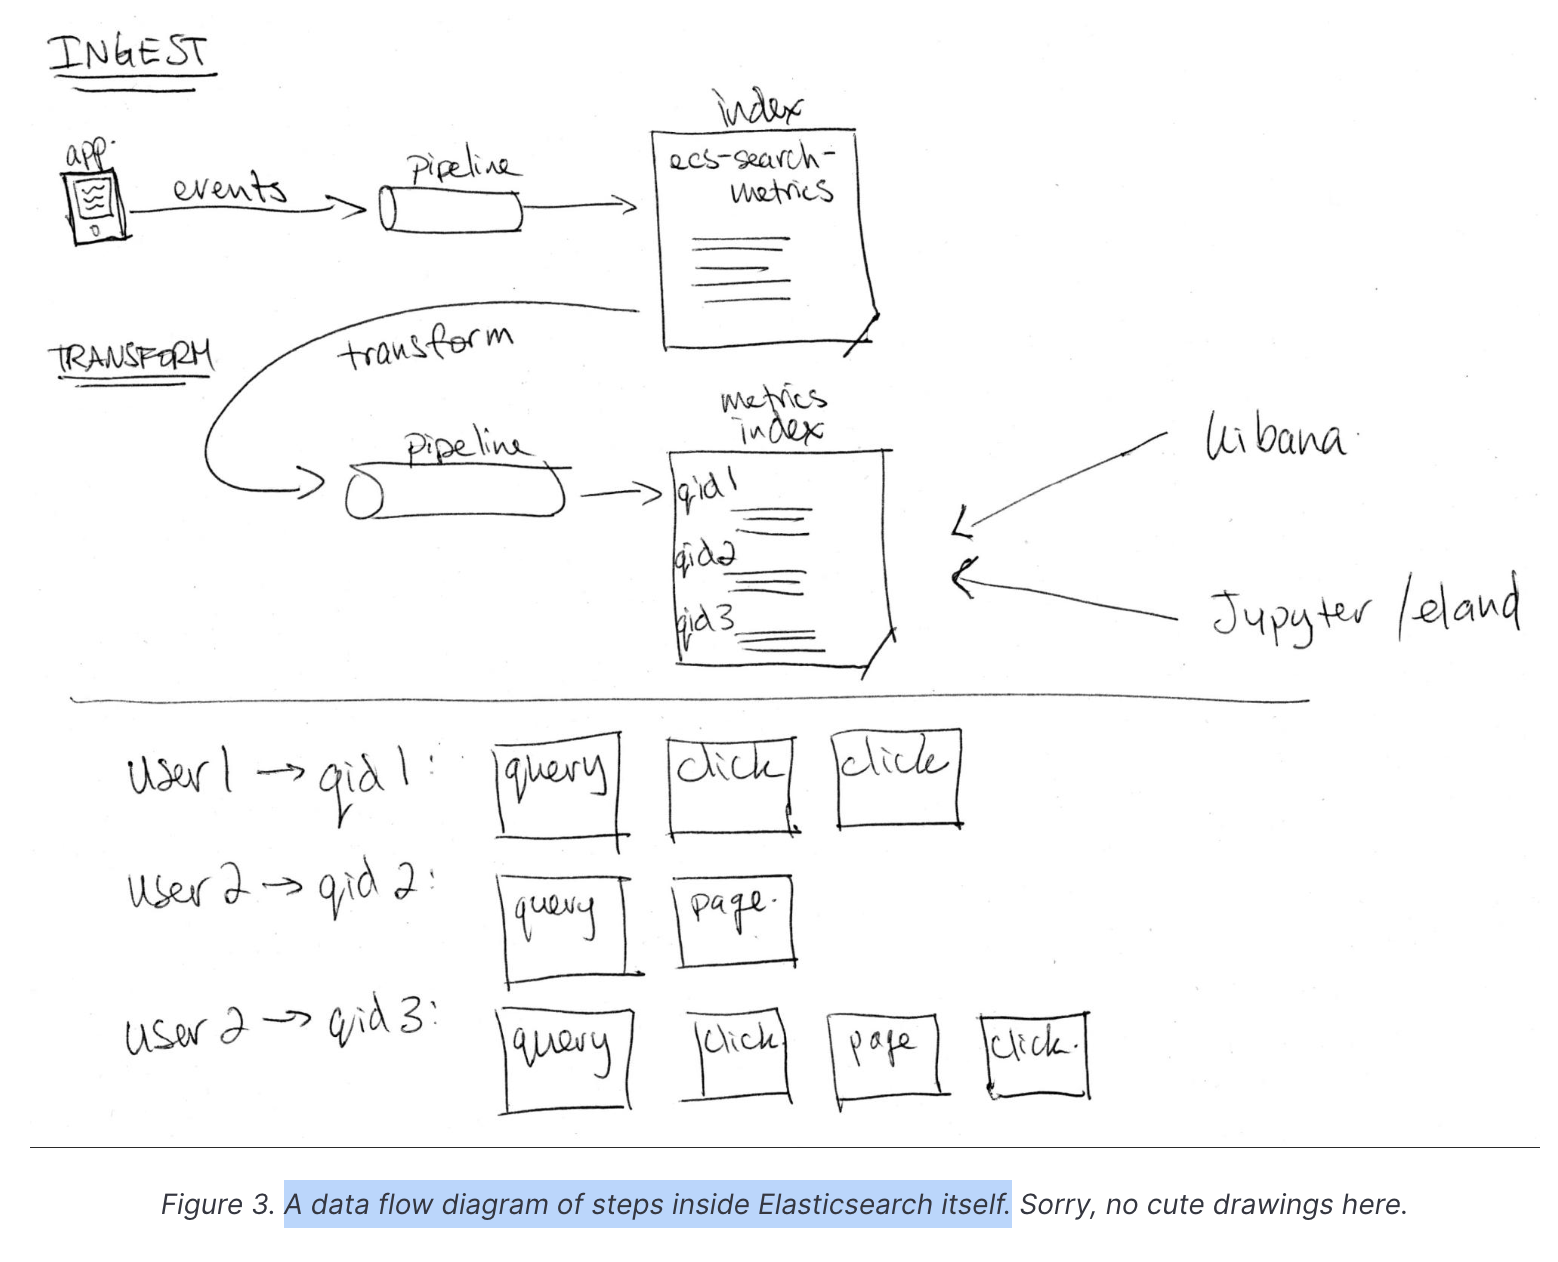 INGEST
app.
events
pipeline
index
ecs-search-
metrics
TRANSFORM
transform
pipeline
metrics
index
qid1
qid2
qid3
kibana
Jupyter/eland
user 1 → qid 1: query click click
user 2 → qid 2: query page.
user 2 → qid 3: query click page click.
Figure 3. A data flow diagram of steps inside Elasticsearch itself. Sorry, no cute drawings here.